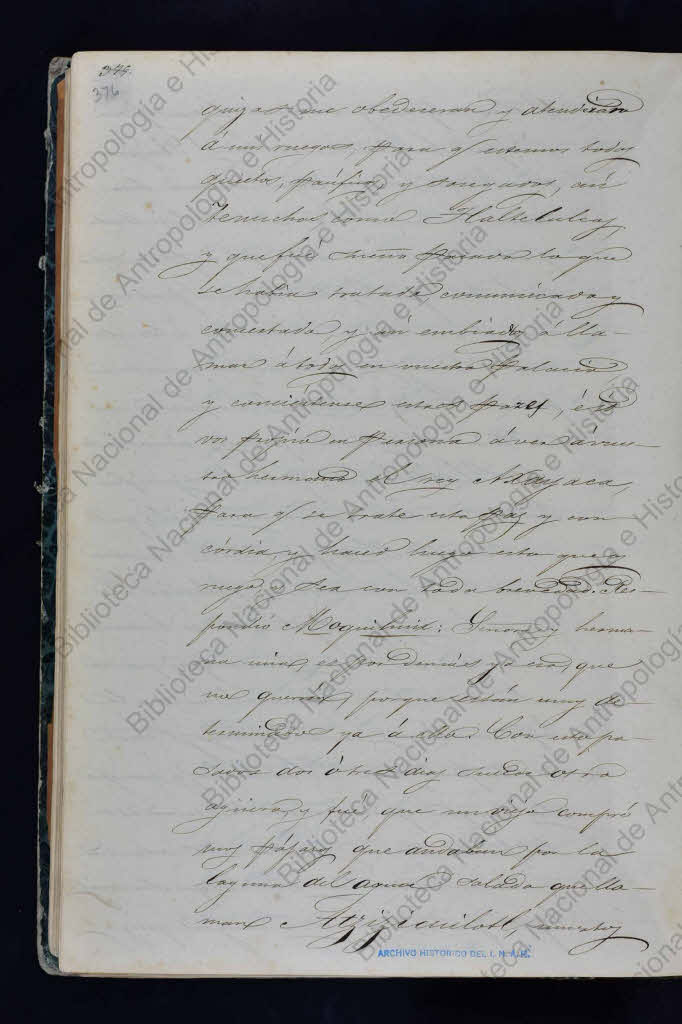 375.
376
quizas me obedeceran, y atenderán
á mis ruegos, para q̃ estemos todos
quietos, pacificos, y sosegados, así
Tenuchos como Tlaltelulcas,
y que fué sueño pasado lo que
se había tratado comunicado y
concertado, y así embiadlos á lla-
mar á todos en vuestro Palacio
y conciertense estas Pazes, é id
vos própio en persona á ver á vues-
tro hermano el rey Axayaca,
para q̃ se trate esta paz y con
córdia, y haced luego esto que os
ruego, y sea con toda brevedad. Res-
pondió Moquihuix: Señora y herma-
na mia, es por demás ya eso, que
no querrán, porque están muy de-
terminados ya á ello. Con esto pa-
sados dos ó tres dias sucede otro
agüero, y fué que un viejo compró
unos pájaros que andaban por la
laguna del agua salada que lla-
man Atzitzicuilotl, muertos
ARCHIVO HISTORICO DEL I. N. A. H.
Biblioteca Nacional de Antropología e Historia